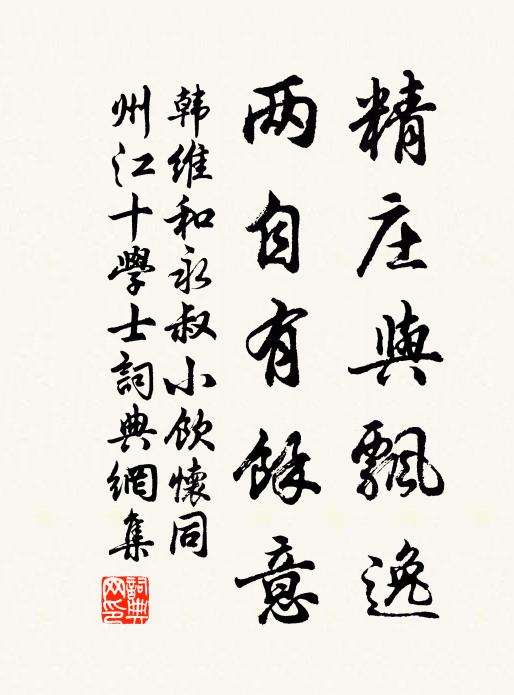 精庄與飄逸
两自有餘意
韩維和永叔小飲懷同
州江十學士詞典網集
詞典网印